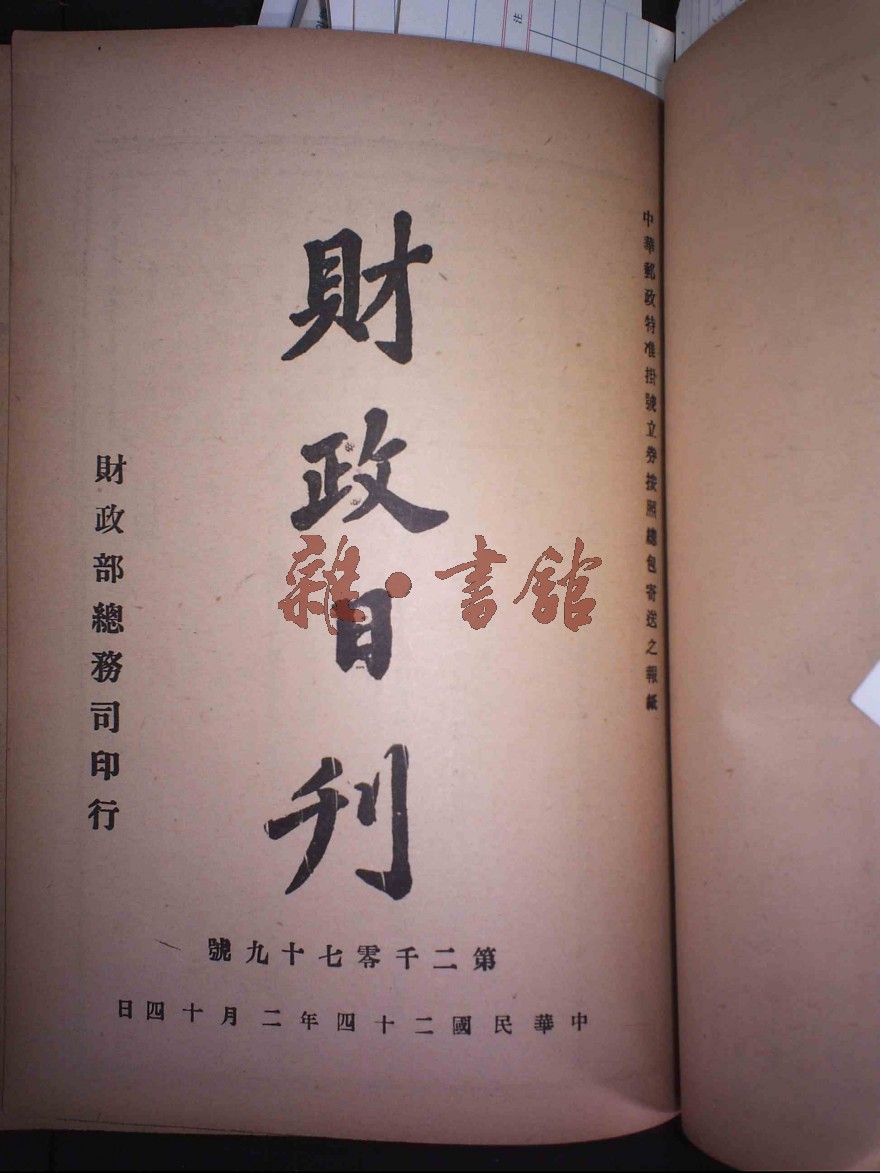 中華郵政特准掛號立劵按照總包寄送之報紙
財政日刊
財政部總務司印行
第二千零七十九號
中華民國二十四年二月十四日
雜·書館
注